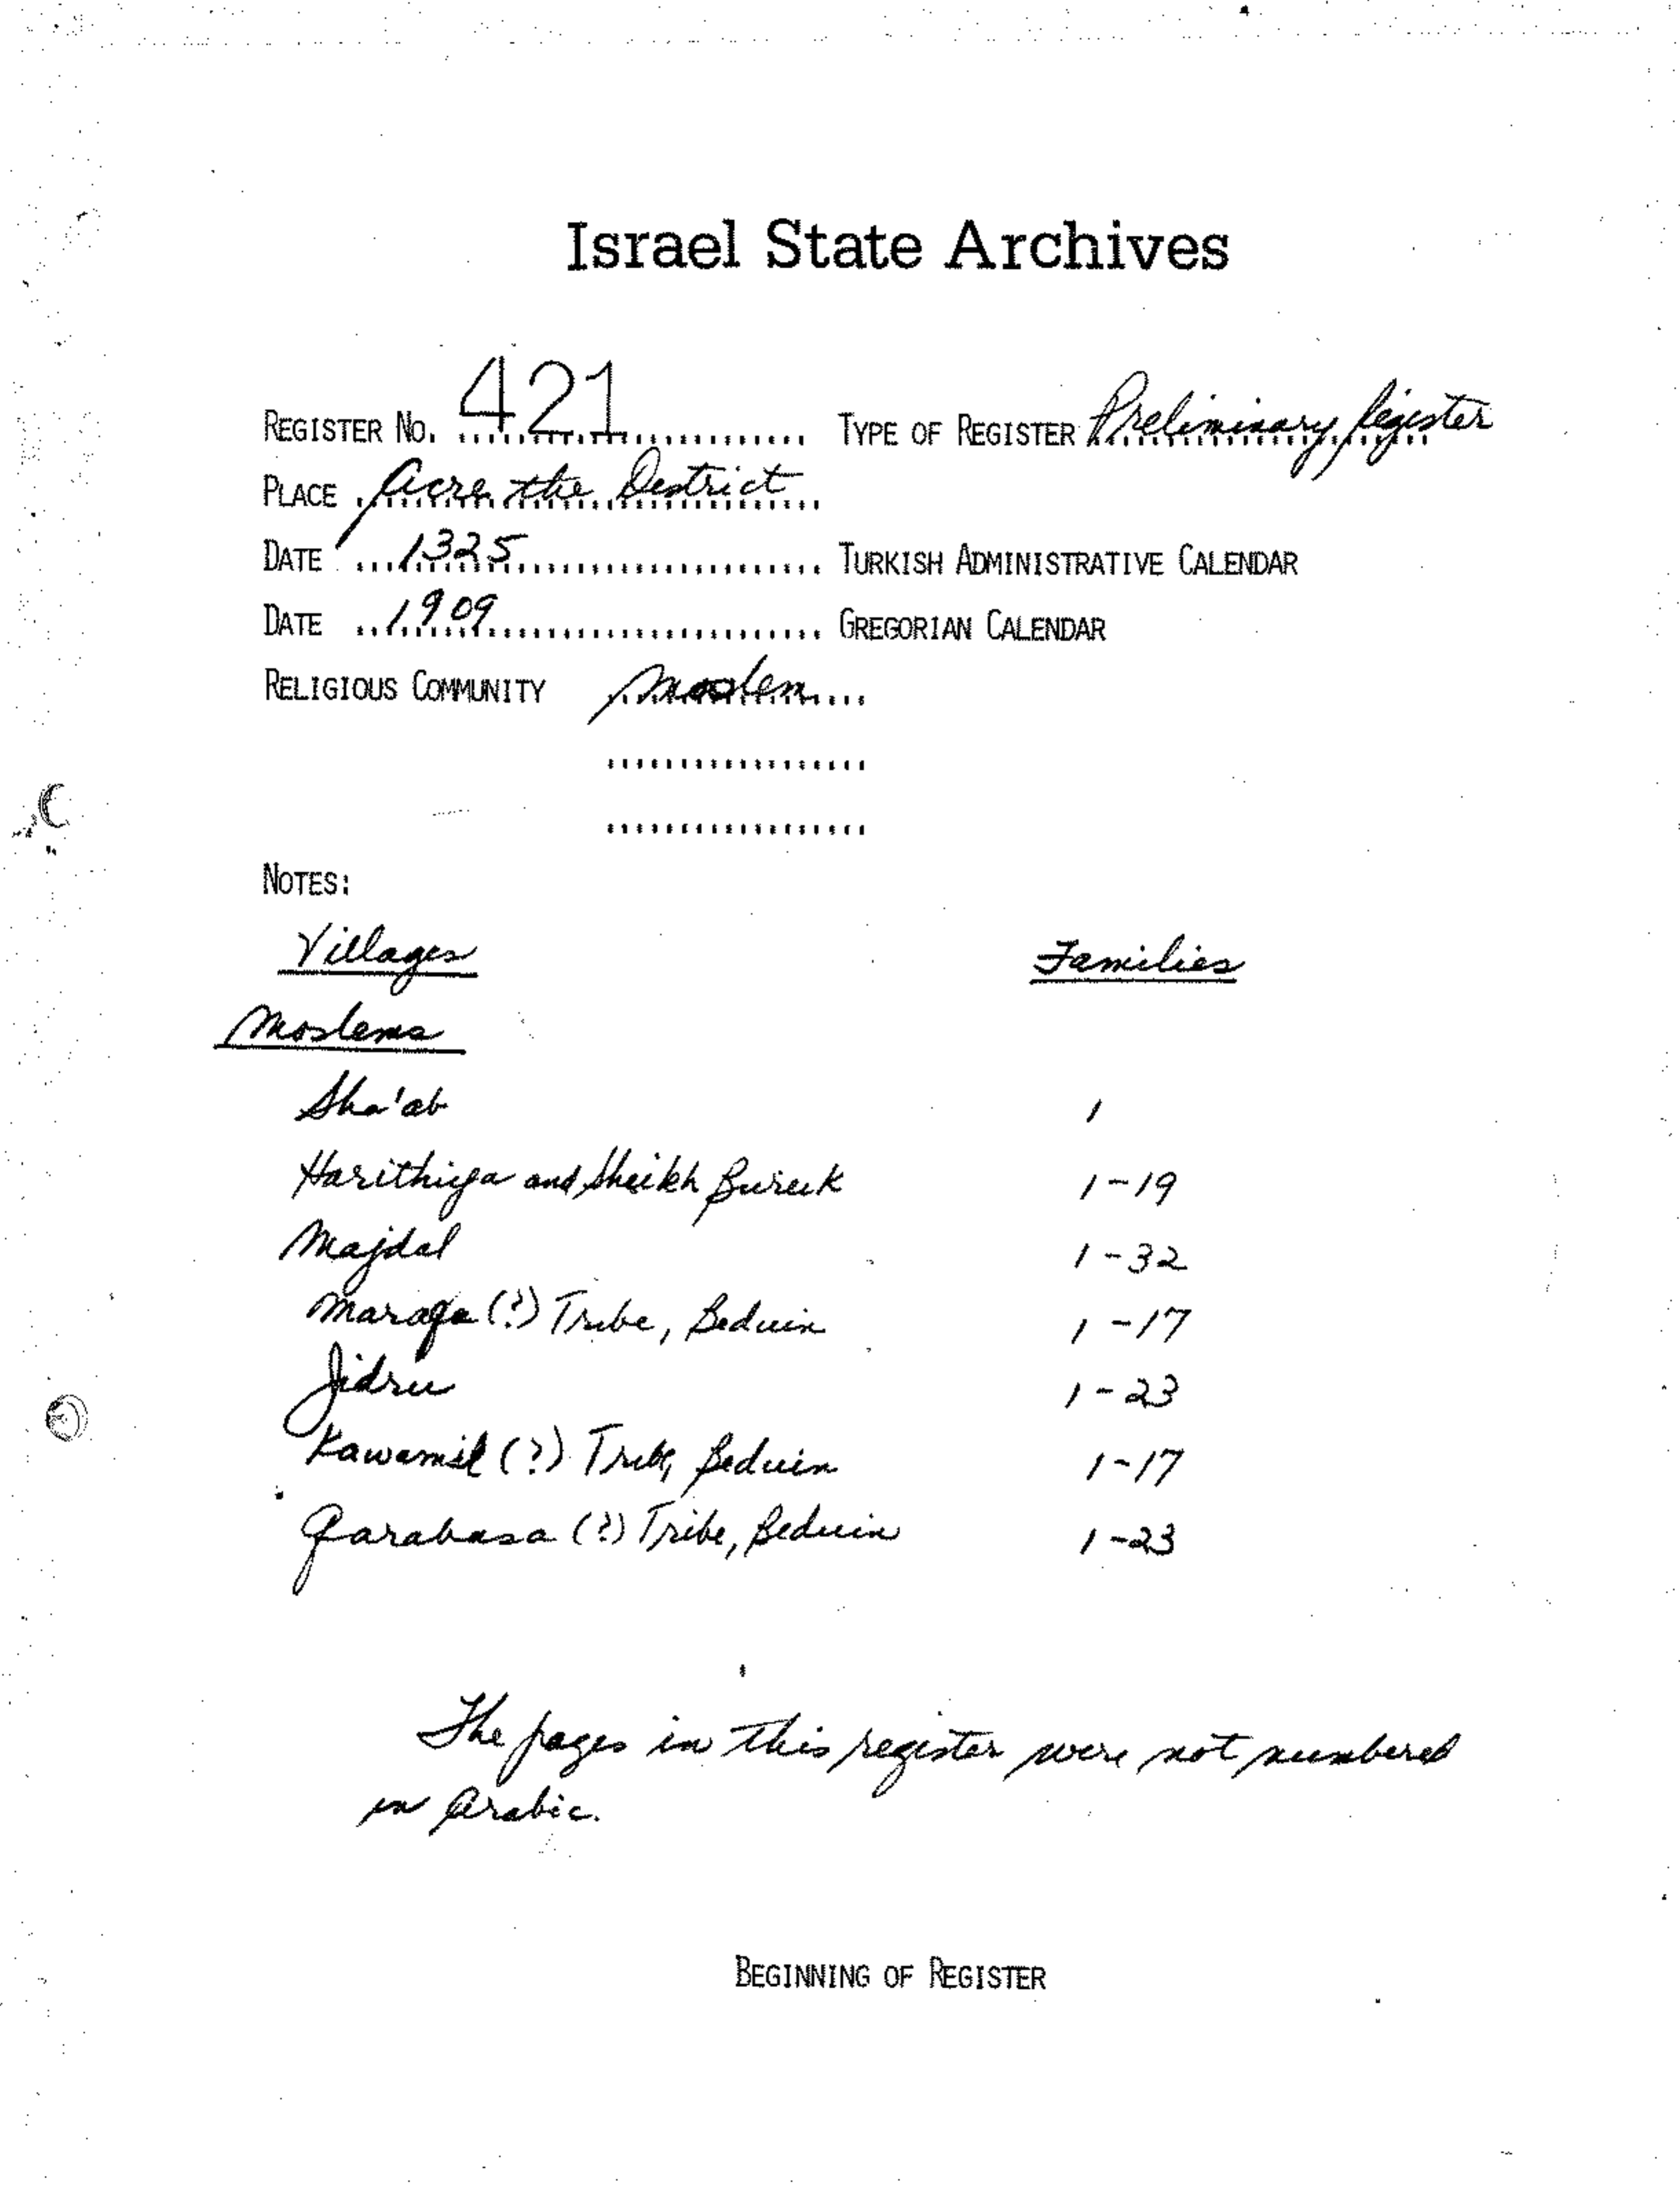 Israel State Archives
REGISTER NO. 421 TYPE OF REGISTER Preliminary Register
PLACE Acre, the District
DATE 1325 TURKISH ADMINISTRATIVE CALENDAR
DATE 1909 GREGORIAN CALENDAR
RELIGIOUS COMMUNITY Moslem
NOTES:
Villages Families
Moslems
Sha'ab 1
Harithiya and Sheikh Bureik 1-19
Majdal 1-32
(?) Tribe, Beduin 1-17
Jidru 1-23
Kawamil (?) Tribe, Beduin 1-17
(?) Tribe, Beduin 1-23
The pages in this register were not numbered
in Arabic.
BEGINNING OF REGISTER